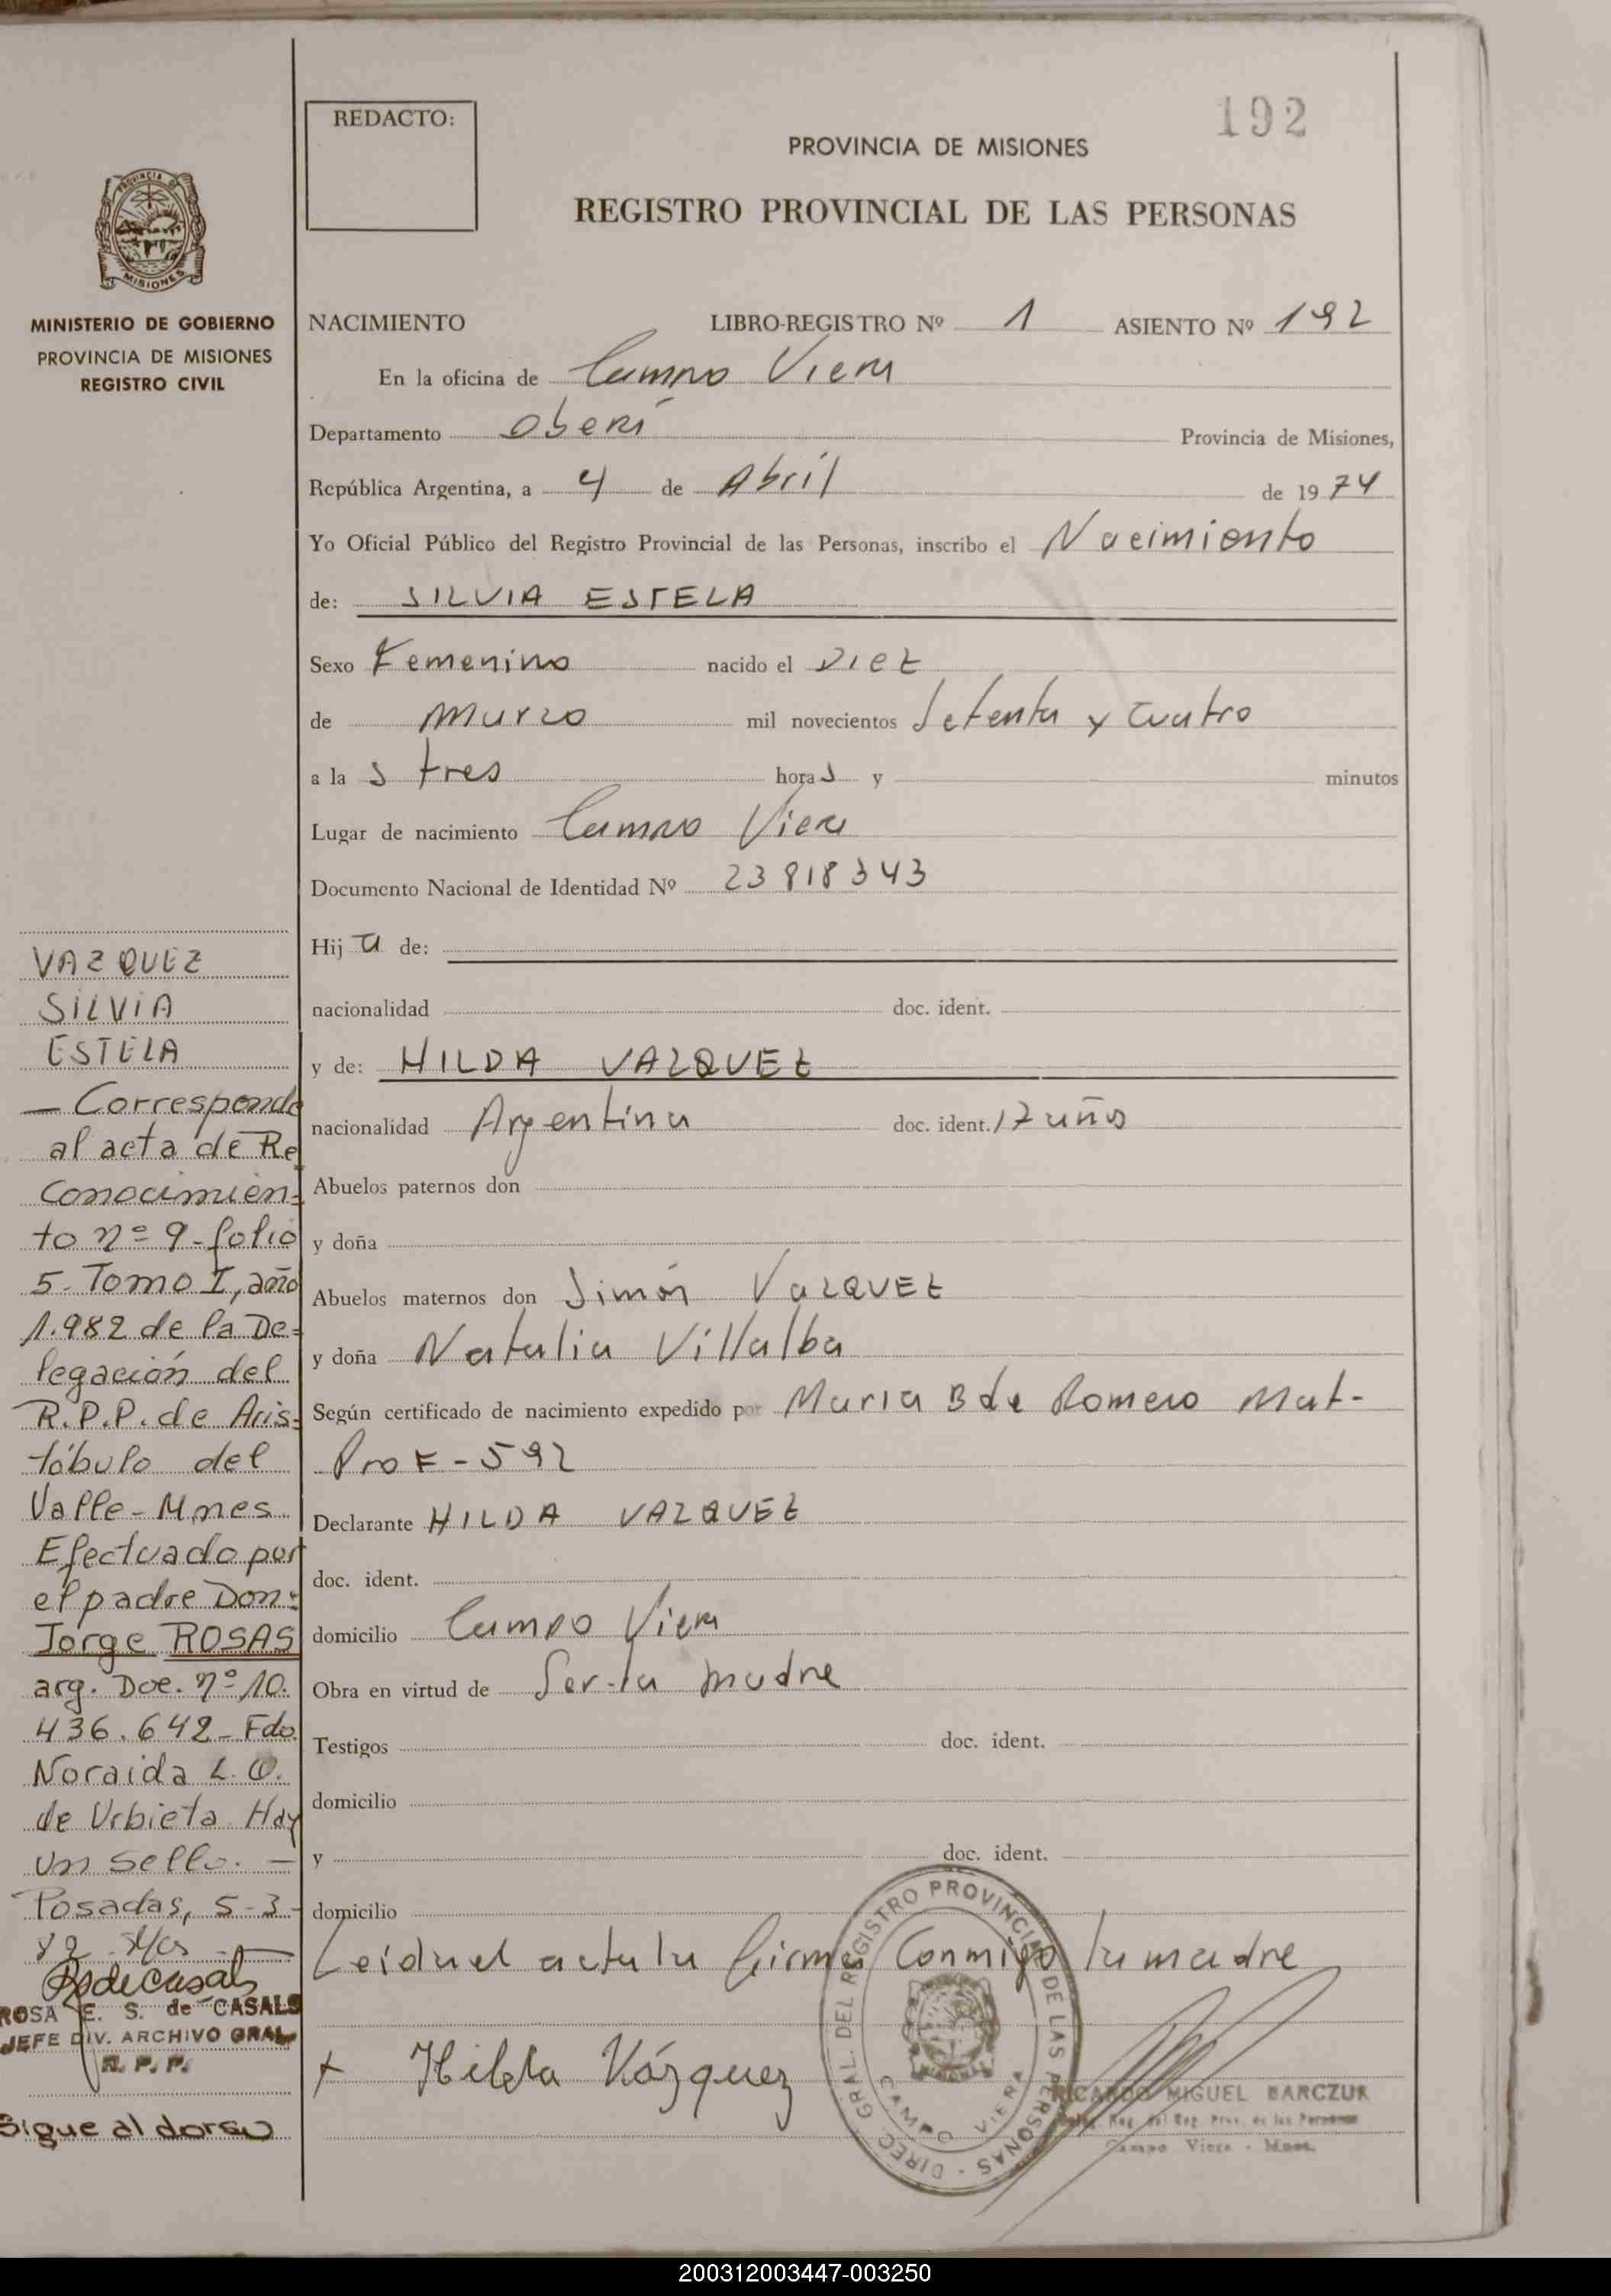 192
REDACTO:
PROVINCIA DE MISIONES
REGISTRO PROVINCIAL DE LAS PERSONAS
PROVINCIA DE
MISIONES
MINISTERIO DE GOBIERNO
PROVINCIA DE MISIONES
REGISTRO CIVIL
NACIMIENTO LIBRO-REGISTRO Nº 1 ASIENTO Nº 192
En la oficina de Campo Viera
Departamento Oberí Provincia de Misiones,
República Argentina, a 4 de Abril de 1974
Yo Oficial Público del Registro Provincial de las Personas, inscribo el Nacimiento
de: SILVIA ESTELA
Sexo Femenino nacido el Diez
de Marzo mil novecientos Setenta y Cuatro
a la s tres hora s y minutos
Lugar de nacimiento Campo Viera
Documento Nacional de Identidad Nº 23818343
Hij a de:
nacionalidad doc. ident.
y de: HILDA VAZQUEZ
nacionalidad Argentina doc. ident. 17 años
Abuelos paternos don
y doña
Abuelos maternos don Simón VAZQUEZ
y doña Natalia Villalba
Según certificado de nacimiento expedido por Maria B de Romero Mat-
Prof-592
Declarante HILDA VAZQUEZ
doc. ident.
domicilio Campo Viera
Obra en virtud de Ser-la madre
Testigos doc. ident.
domicilio
y doc. ident.
domicilio
Leida el acta la firma Conmigo la madre
+ Hilda Vázquez
DIREC. GRAL. DEL REGISTRO PROVINCIAL DE LAS PERSONAS
CAMPO VIERA
RICARDO MIGUEL BARCZUK
Campo Viera - Mnes.
VAZQUEZ
SILVIA
ESTELA
— Corresponde
al acta de Re
conocimien-
to nº 9 - folio
5. Tomo I, año
1.982 de la De-
legación del
R.P.P. de Aris-
tóbulo del
Valle - Mnes
Efectuado por
el padre Don:
Jorge ROSAS
arg. Doc. nº 10.
436.642 - Fdo
Noraida L. O.
de Urbieta Hay
un sello. —
Posadas, 5-3-
82
ROSA E. S. de CASALS
JEFE DIV. ARCHIVO GRAL
R. P. P.
Sigue al dorso
200312003447-003250